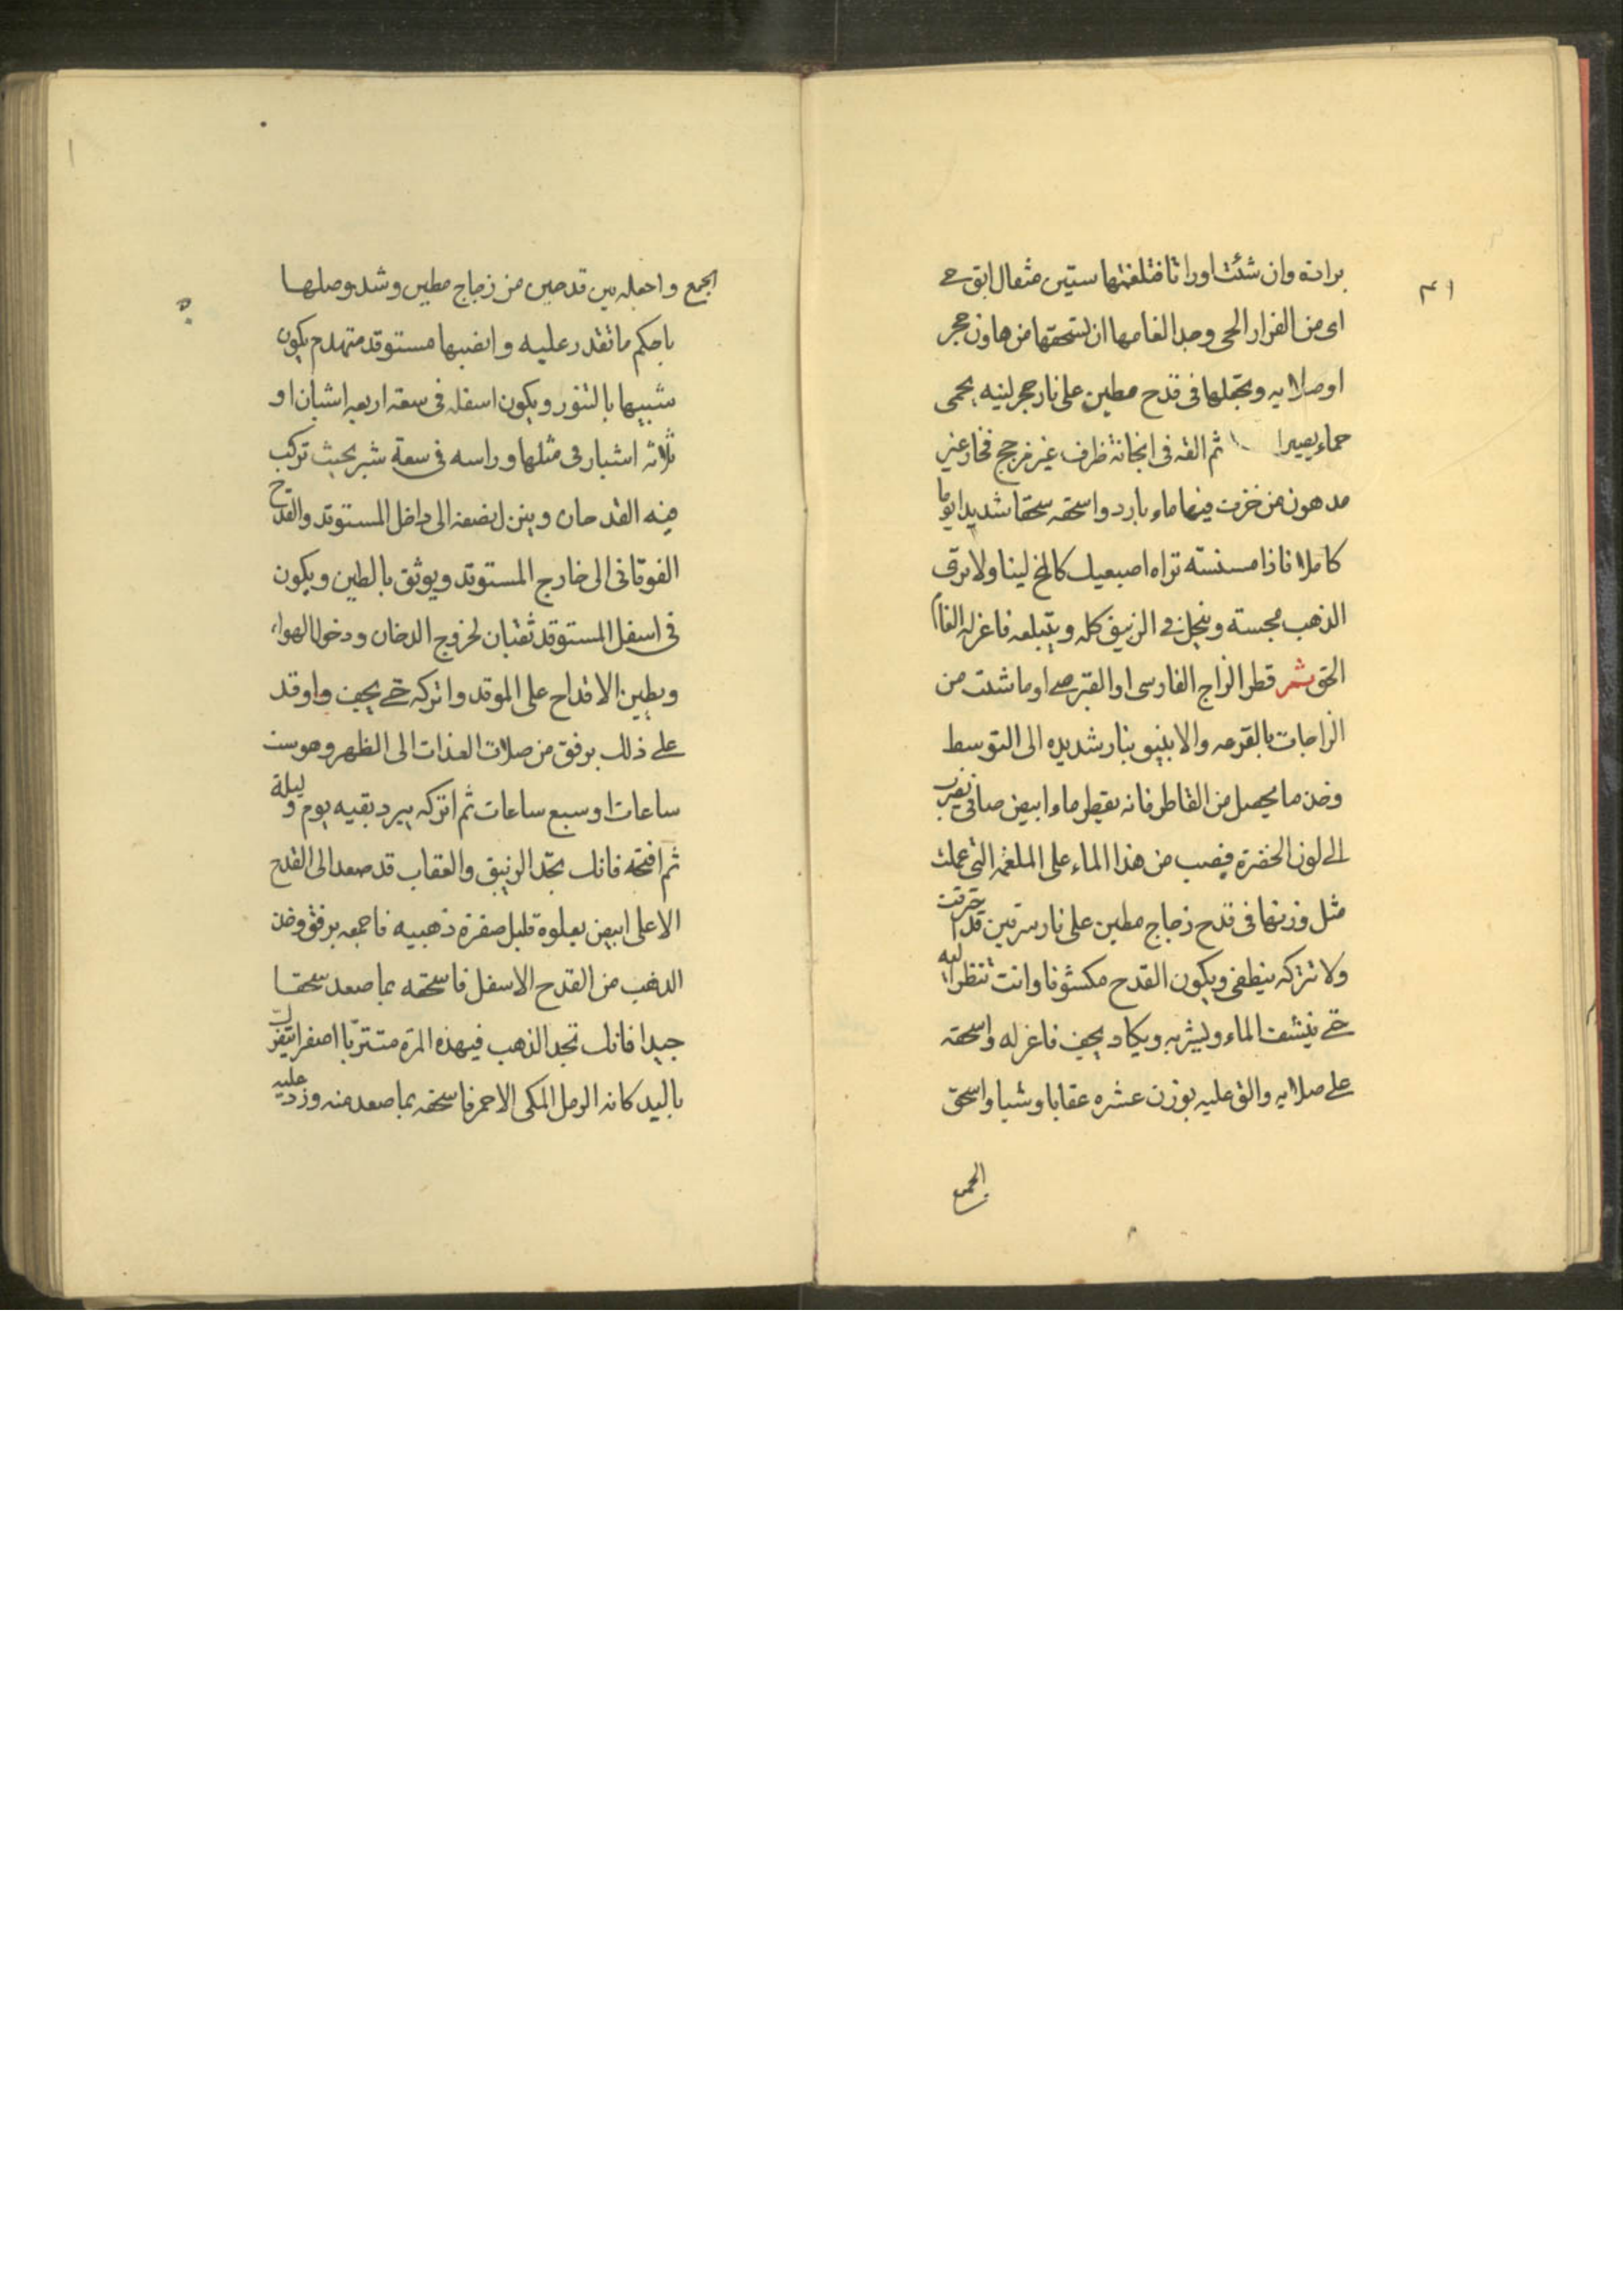 برادة وان شئت اوراقا فتلغمها ستين مثقال ابق حي
اى من الفرار الحى وحد الغامها ان تسحقها فى هاون حجر
اوصلايه وتجعلها فى قدح مطين على نار جمر لينه يحمى
حماء يصيرا ثم القه فى انجانة ظرف غير مزجج فخار غير
مدهون من خزف فيها ماء بارد واسحقه سحقا شديدا يوما
كاملا فاذا مسسته تراه اصبعيك كالمخ لينا ولا ترى
الذهب مجسة وينحل فى الزيبق كله ويبتلعه فاعزله الغاما
الحق ثم قطر الزاج الفارسى او القبرصى او ما شئت من
الزاجات بالقرعه والانبيق بنار شديده الى التوسط
وخذ ما يحصل من القاطر فانه يقطر ماء ابيض صافى يضرب
الى لون الخضرة فيصب من هذا الماء على الملغمه التى عملت
مثل وزنها فى قدح زجاج مطين على نار سرقين قد احترقت
ولا تتركه ينطفى ويكون القدح مكشوفا وانت تنظر اليه
حتى ينشف الماء ويشربه ويكاد يجف فاعزله واسحقه
على صلايه والق عليه بوزن عشره عقابا وشبا واسحق
الجميع
الجمع واجعله بين قدحين من زجاج مطين وشد وصلها
باحكم ما تقدر عليه وانصبها مستوقد متهدم يكون
شبيها بالتنور ويكون اسفله فى سعة اربعه اشبار او
ثلاثه اشبار فى مثلها وراسه فى سعة شبر بحيث تركب
فيه القدحان وينزل نصفه الى داخل المستوقد والقدح
الفوقانى الى خارج المستوقد ويوثق بالطين ويكون
فى اسفل المستوقد ثقبان لخروج الدخان ودخول الهواء
ويطين الاقداح على الموقد واتركه حتى يجف واوقد
على ذلك برفق من صلات الغذات الى الظهر وهو ست
ساعات او سبع ساعات ثم اتركه يبرد بقيه يوم وليلة
ثم افتحه فانك تجد الزيبق والعقاب قد صعد الى القدح
الاعلى ابيض يعلوه قليل صفرة ذهبيه فاجمعه برفق وخذ
الذهب من القدح الاسفل فاسحقه بما صعد سحقا
جيدا فانك تجد الذهب فيهذه المرة متتربا اصفر يتفرك
باليد كانه الرمل المكى الاحمر فاسحقه بما صعد منه وزد عليه